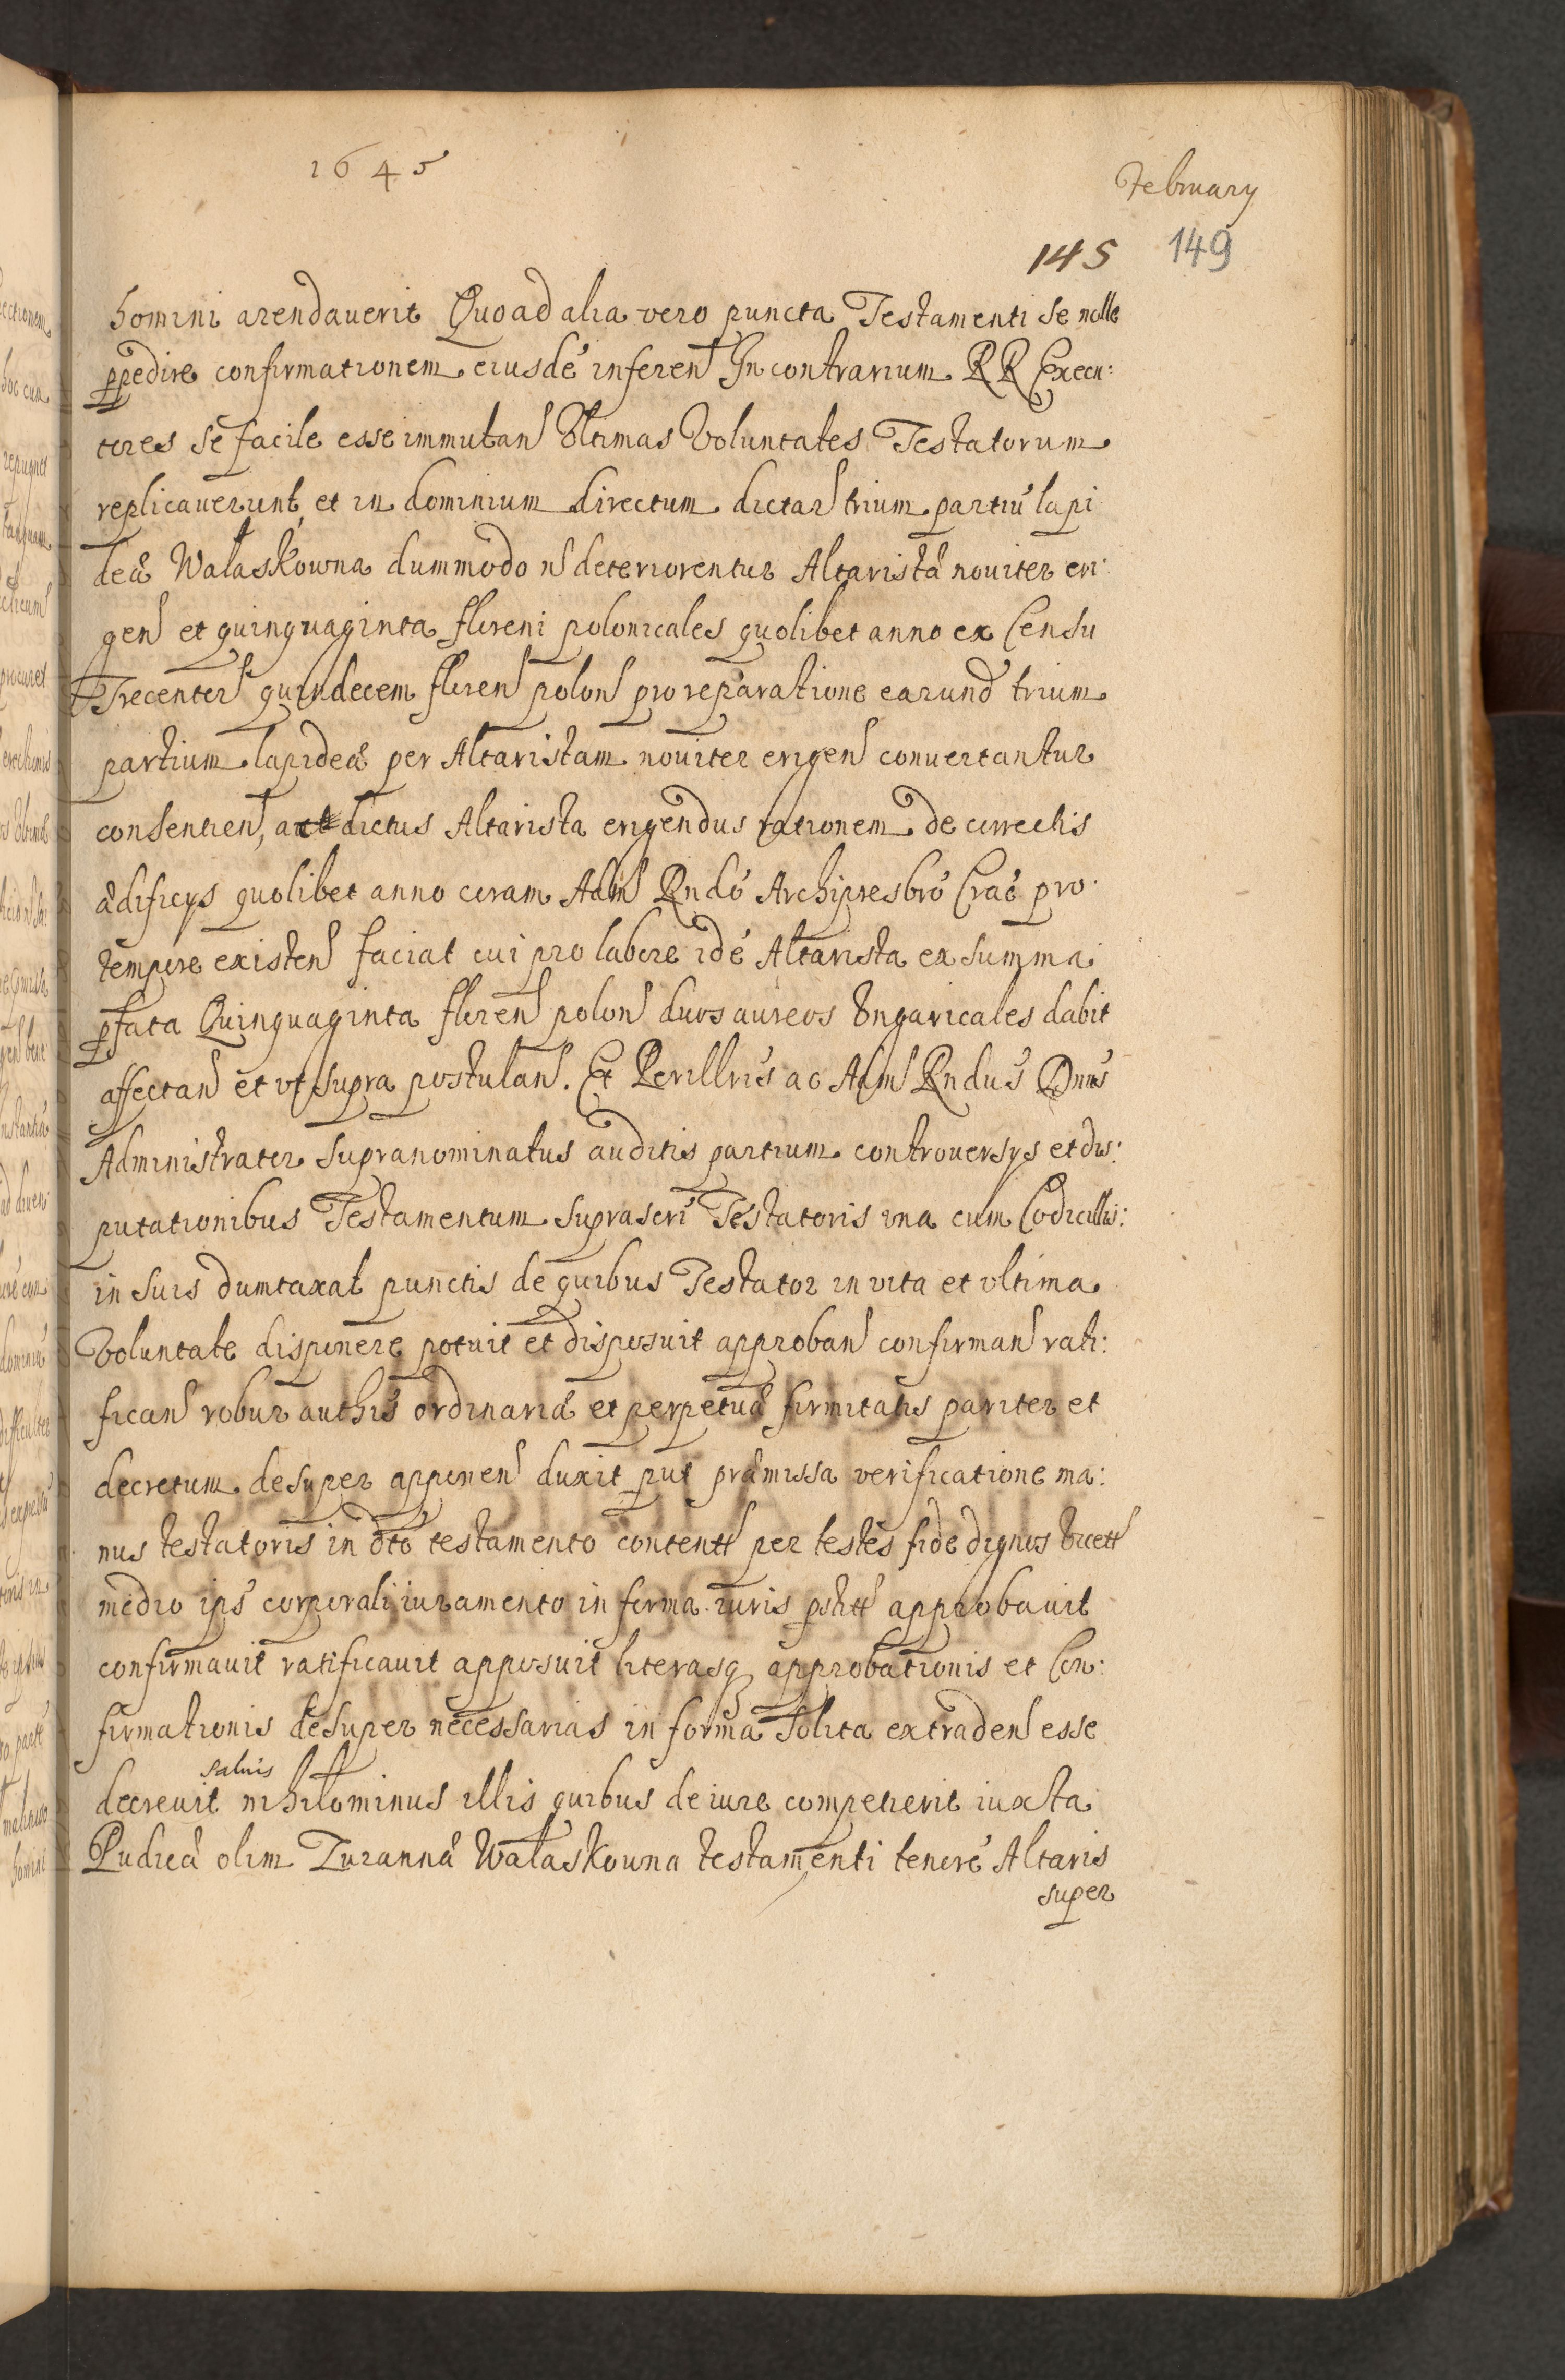 1645
February
145 149
homini arendauerit Quoad alia vero puncta Testamenti se nolle
ppedire confirmationem eiusdé inferen In contrarium RR Execu:
tores se facile esse immutan Vltimas Voluntates Testatorum
replicauerunt, et in dominium directum dictar trium partiú lapi
deæ Walaskowna dummodo n deteriorentur Altaristá nouiter eri:
gen et quinquaginta floreni polonicales quolibet anno ex Censu
Trecentor quindecem floren polon pro reparatione earund trium
partium lapideæ per Altaristam nouiter erigen conuertantur
consentien, ac dictus Altarista erigendus rationem de correctis
ædificys quolibet anno coram Adm Rndó Archipresbró Crac̃ pro
tempore existen faciat cui pro labore idé Altarista ex summa
pfata Quinquaginta floren polon duos aureos Vngaricales dabit
affectan et vt supra postulan. Et Perillris ac Adm Rndús Dnus
Administrator supranominatus auditis partium controuersys et dis:
putationibus Testamentum suprascri Testatoris vna cum Codicillis:
in suis dumtaxat punctis de quibus Testator in vita et vltima
Voluntate disponere potuit et disposuit approban confirman rati:
fican robur authis ordinariæ et perpetuæ firmitatis pariter et
decretum desuper apponen duxit put præmissa verificatione ma:
nus testatoris in dto testamento content per testes fide dignos
medio ips corporali iuramento in forma iuris pstit approbauit
confirmauit ratificauit apposuit literasq approbationis et Con:
firmationis desuper necessarias in forma solita extraden esse
saluis
decreuit nihilominus illis quibus de iure competierit iuxta
Pudicæ olim Zuzannæ Walaskowna testamenti tenoré Altaris
super